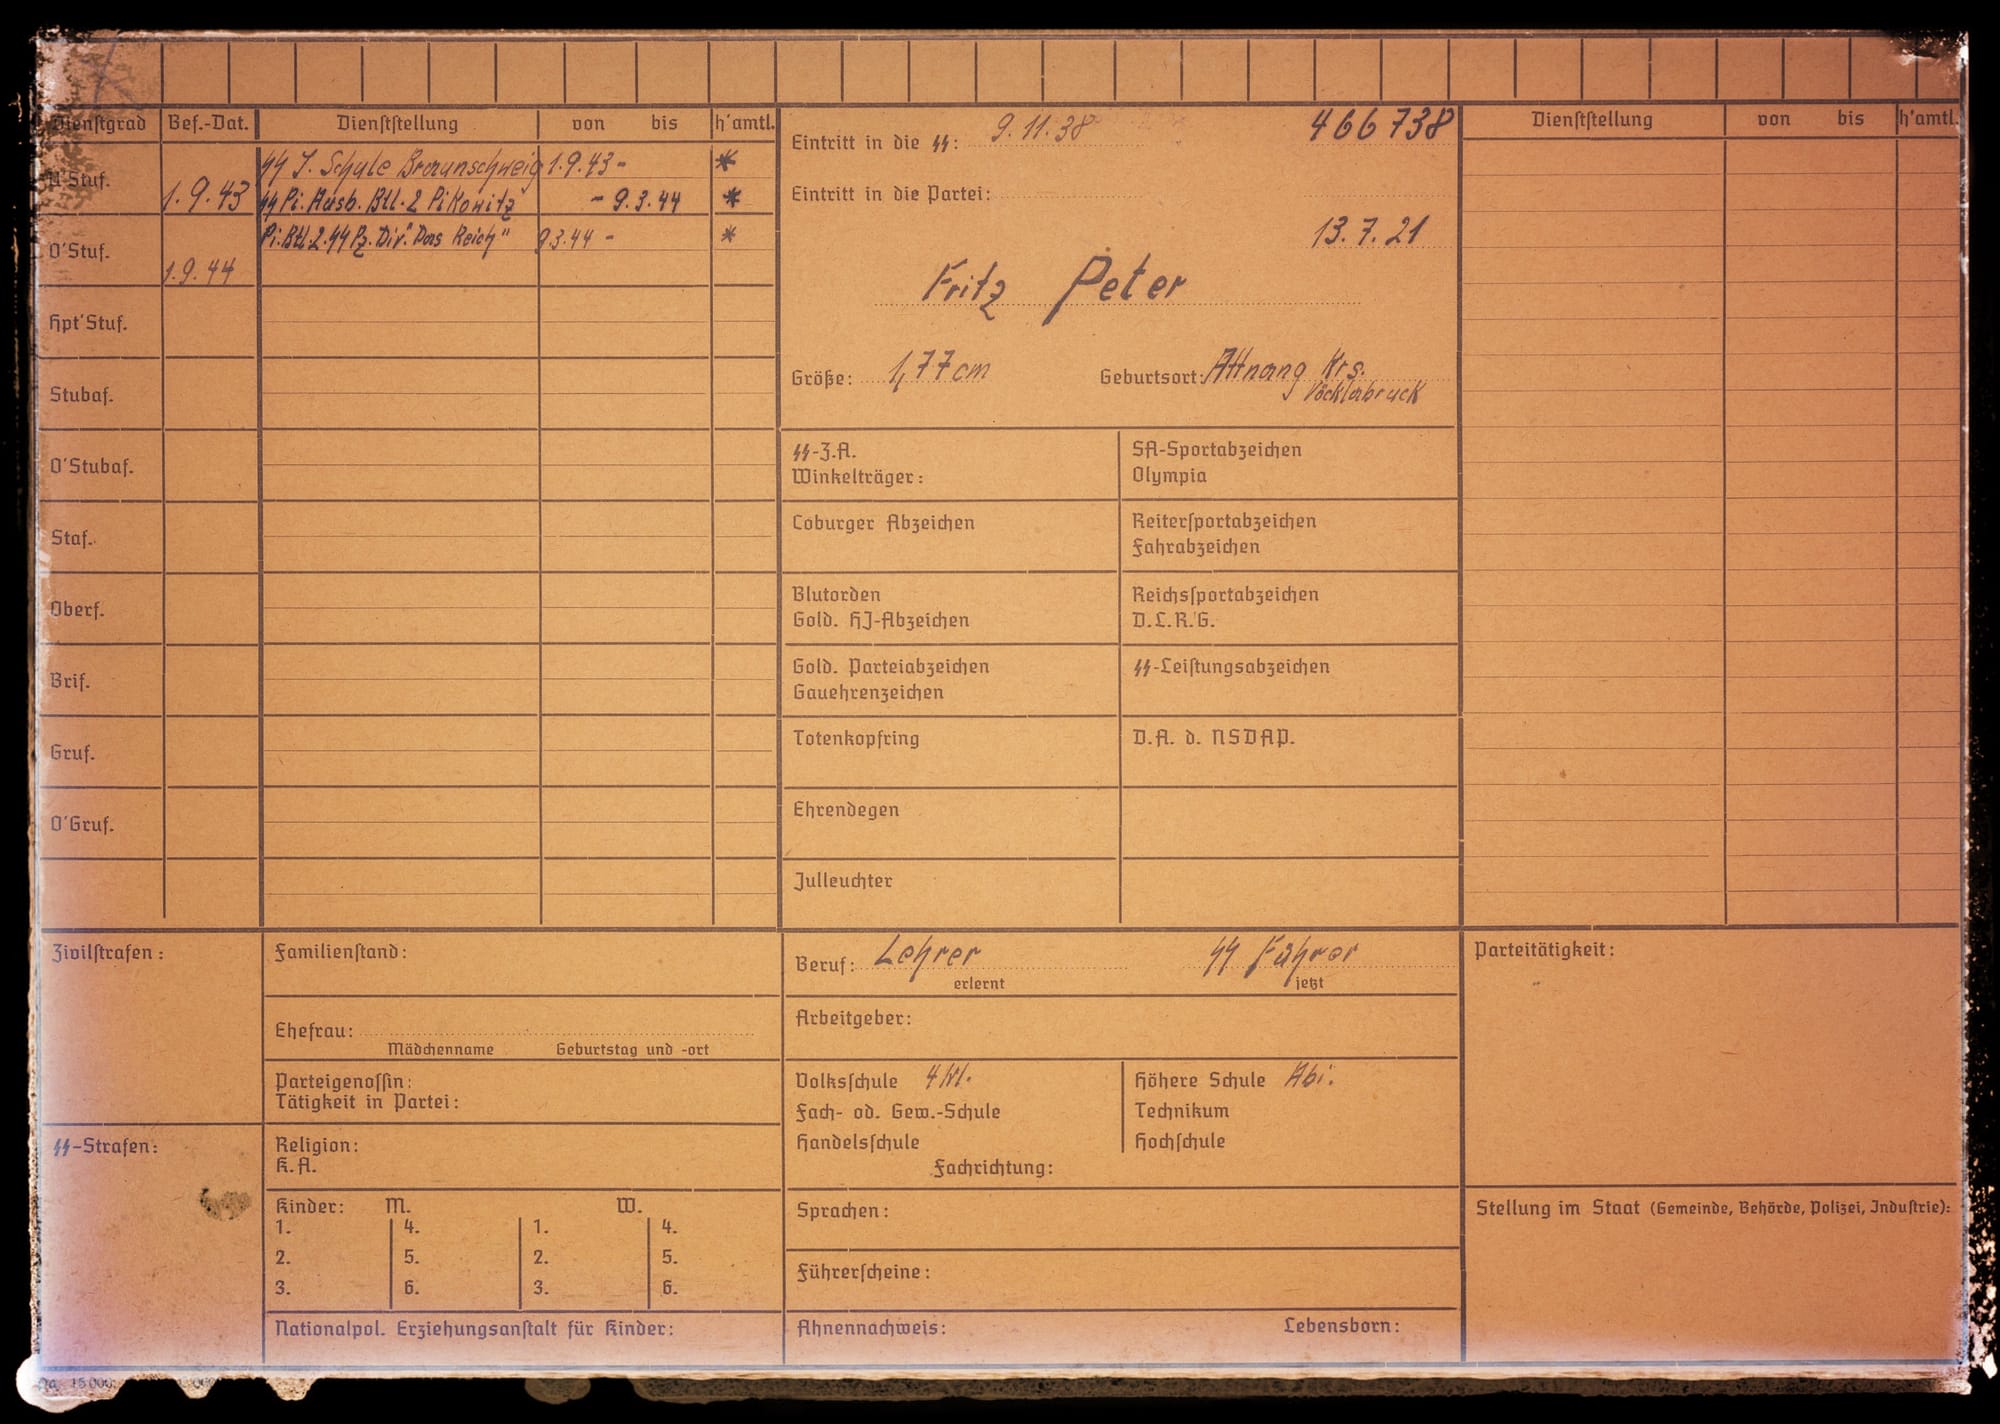 Dienstgrad Bef.-Dat. Dienststellung von bis h'amtl.
U'Stuf. 1.9.43 SS J. Schule Braunschweig 1.9.43 - *
SS Pi. Ausb. Btl. 2 Pikowitz - 9.3.44 *
O'Stuf. 1.9.44 Pi. Btl. 2. SS Pz. Div. "Das Reich" 9.3.44 - *
Hpt'Stuf.
Stubaf.
O'Stubaf.
Staf.
Oberf.
Brif.
Gruf.
O'Gruf.
Eintritt in die SS: 9.11.38 466738
Eintritt in die Partei:
13.7.21
Fritz Peter
Größe: 1,77cm Geburtsort: Attnang Krs.
Vöcklabruck
SS-Z.A.
Winkelträger:
SA-Sportabzeichen
Olympia
Coburger Abzeichen
Reitersportabzeichen
Fahrabzeichen
Blutorden
Gold. HJ-Abzeichen
Reichssportabzeichen
D.L.R.G.
Gold. Parteiabzeichen
Gauehrenzeichen
SS-Leistungsabzeichen
Totenkopfring
D.A. d. NSDAP.
Ehrendegen
Julleuchter
Dienststellung von bis h'amtl.
Zivilstrafen:
SS-Strafen:
Familienstand:
Ehefrau:
Mädchenname Geburtstag und -ort
Parteigenossin:
Tätigkeit in Partei:
Religion:
K.A.
Kinder: M. W.
1. 4. 1. 4.
2. 5. 2. 5.
3. 6. 3. 6.
Nationalpol. Erziehungsanstalt für Kinder:
Beruf: Lehrer SS Führer
erlernt jetzt
Arbeitgeber:
Volksschule 4 Kl. Höhere Schule Abi.
Fach- od. Gew.-Schule Technikum
Handelsschule Hochschule
Fachrichtung:
Sprachen:
Führerscheine:
Ahnennachweis: Lebensborn:
Parteitätigkeit:
Stellung im Staat (Gemeinde, Behörde, Polizei, Industrie):
15000